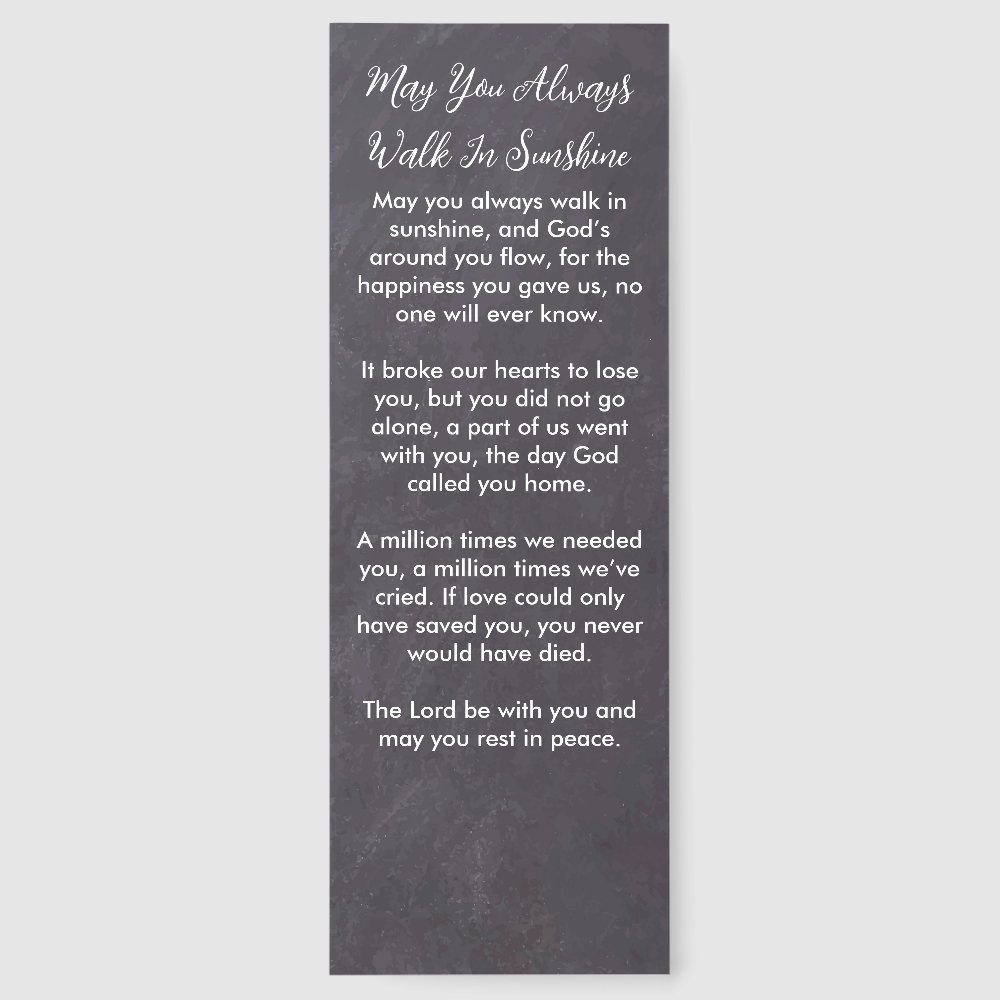 May You Always
Walk In Sunshine
May you always walk in
sunshine, and God’s
around you flow, for the
happiness you gave us, no
one will ever know.
It broke our hearts to lose
you, but you did not go
alone, a part of us went
with you, the day God
called you home.
A million times we needed
you, a million times we’ve
cried. If love could only
have saved you, you never
would have died.
The Lord be with you and
may you rest in peace.